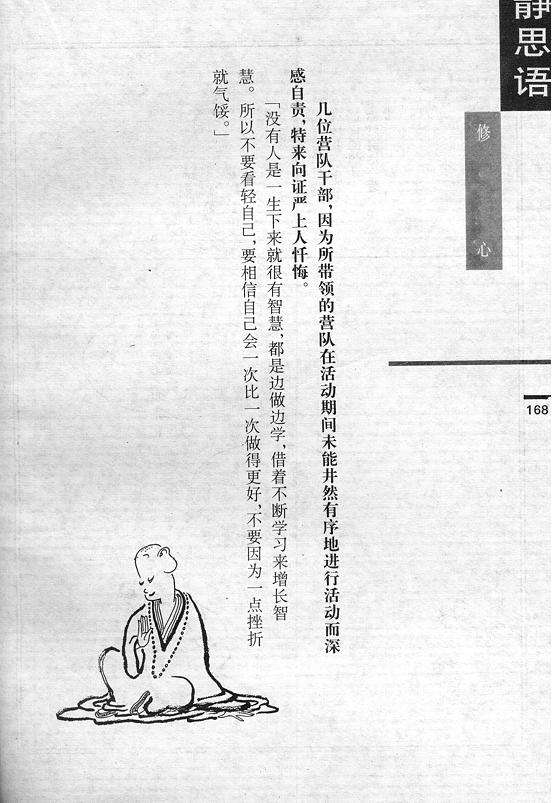 静思语
修心
168
几位营队干部，因为所带领的营队在活动期间未能井然有序地进行活动而深
感自责，特来向证严上人忏悔。
「没有人是一生下来就很有智慧，都是边做边学，借着不断学习来增长智
慧。所以不要看轻自己，要相信自己会一次比一次做得更好，不要因为一点挫折
就气馁。」